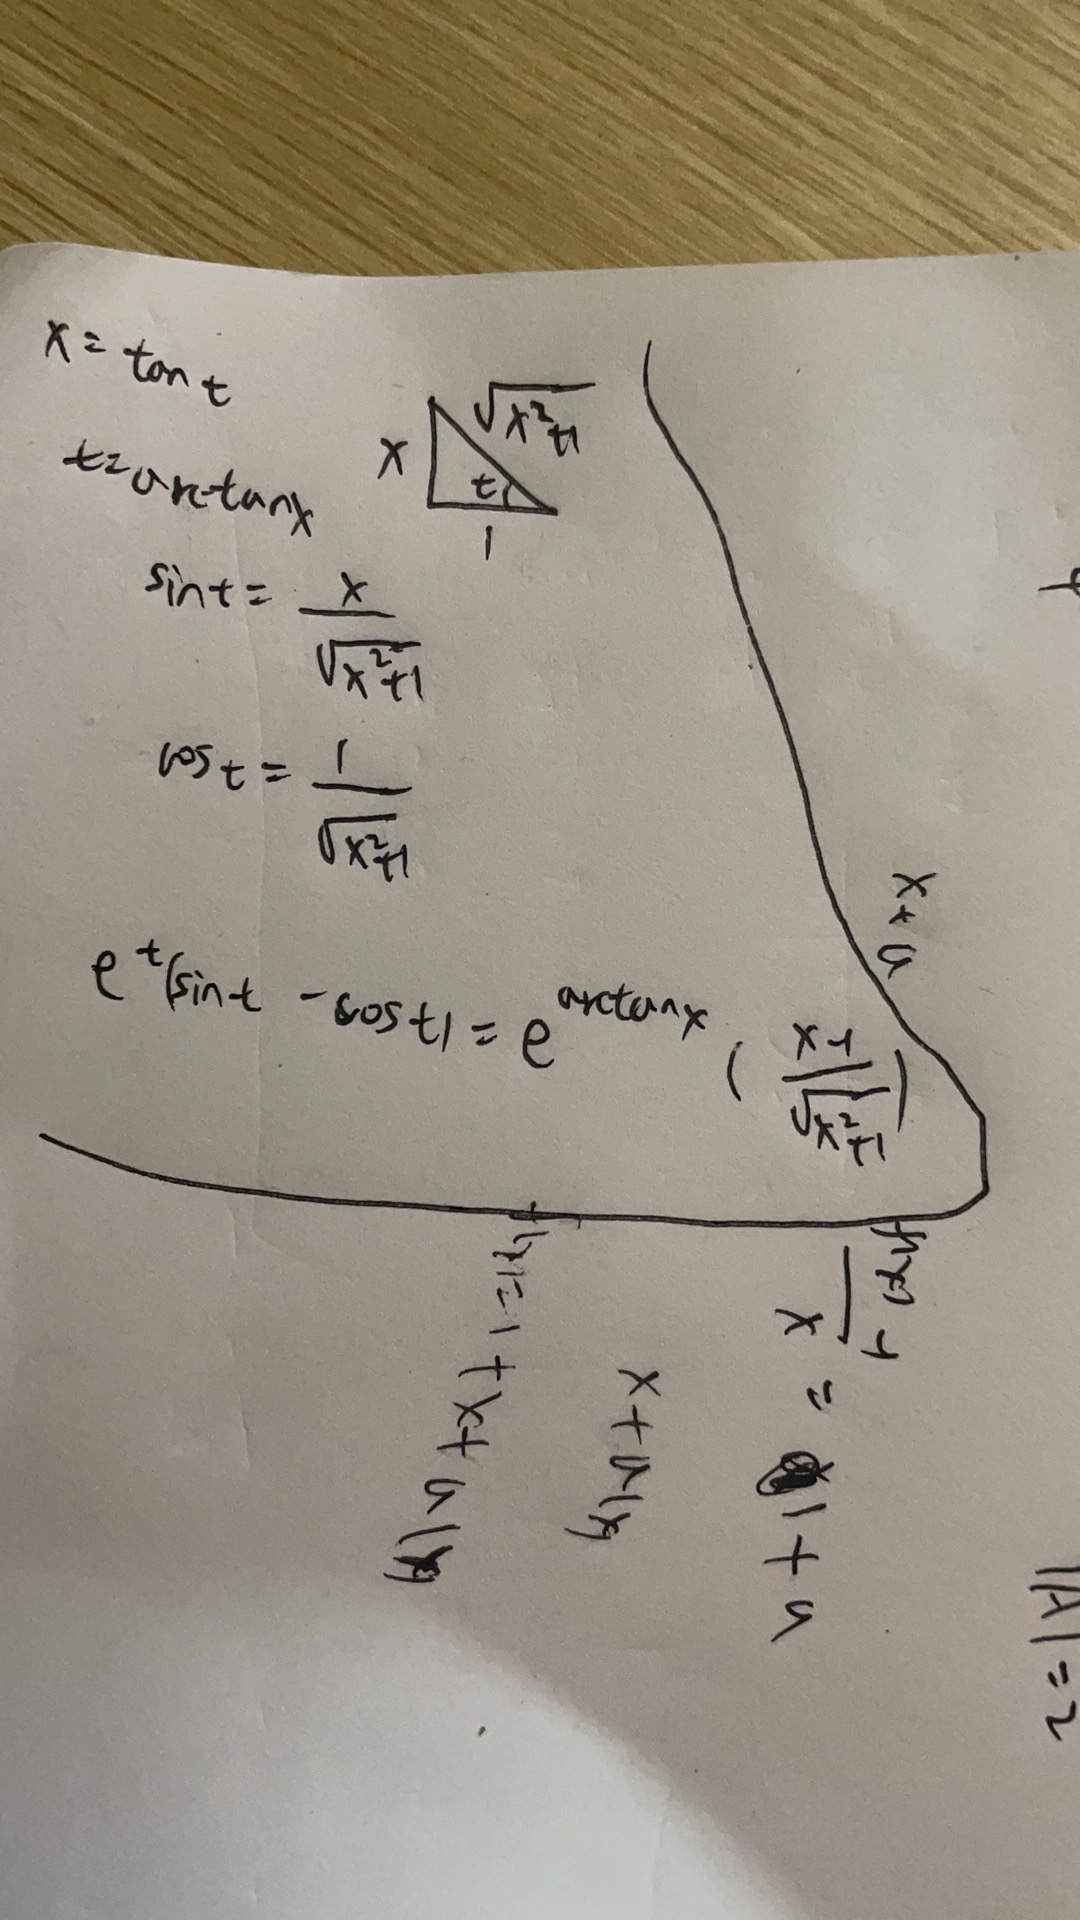 x = tan t
t = arctanx
x
√(x²+1)
t
1
sint = x/√(x²+1)
cost = 1/√(x²+1)
e^t(sint - cost) = e^(arctanx) ((x-1)/√(x²+1))
x+a
x = 1+a
x+a(x)
=1+x+a(x)
|A| = 2